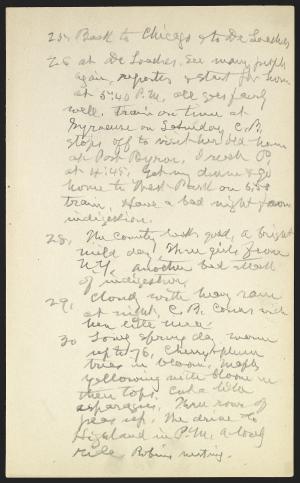 25. Back to Chicago & to De Loaches
26 at De Loaches. See many people
again, reporters & start for home
at 5:40 P.M. all goes fairly
well. train on time at
Syracuse on Saturday. C.B.
stops off to visit her old home
at Port Byron. I reach P.
at 4:45. Get my dinner & go
home to West Park on 6:50
train, Have a bad night from
indigestion.
28, The country looks good, a bright
mild day, three girls from
N.Y. another bad attack
of indigestion,
29, Cloudy with heavy rain
at night, C.B. comes with
her little
30 Lovely spring day, warm
up to 76, Cherry & plum
trees in bloom, maples
yellowing with bloom in
their tops. Cut a little
asparagus. Three rows of
peas up. We drive to
Highland in P.M. A lovely
ride. Robins nesting.